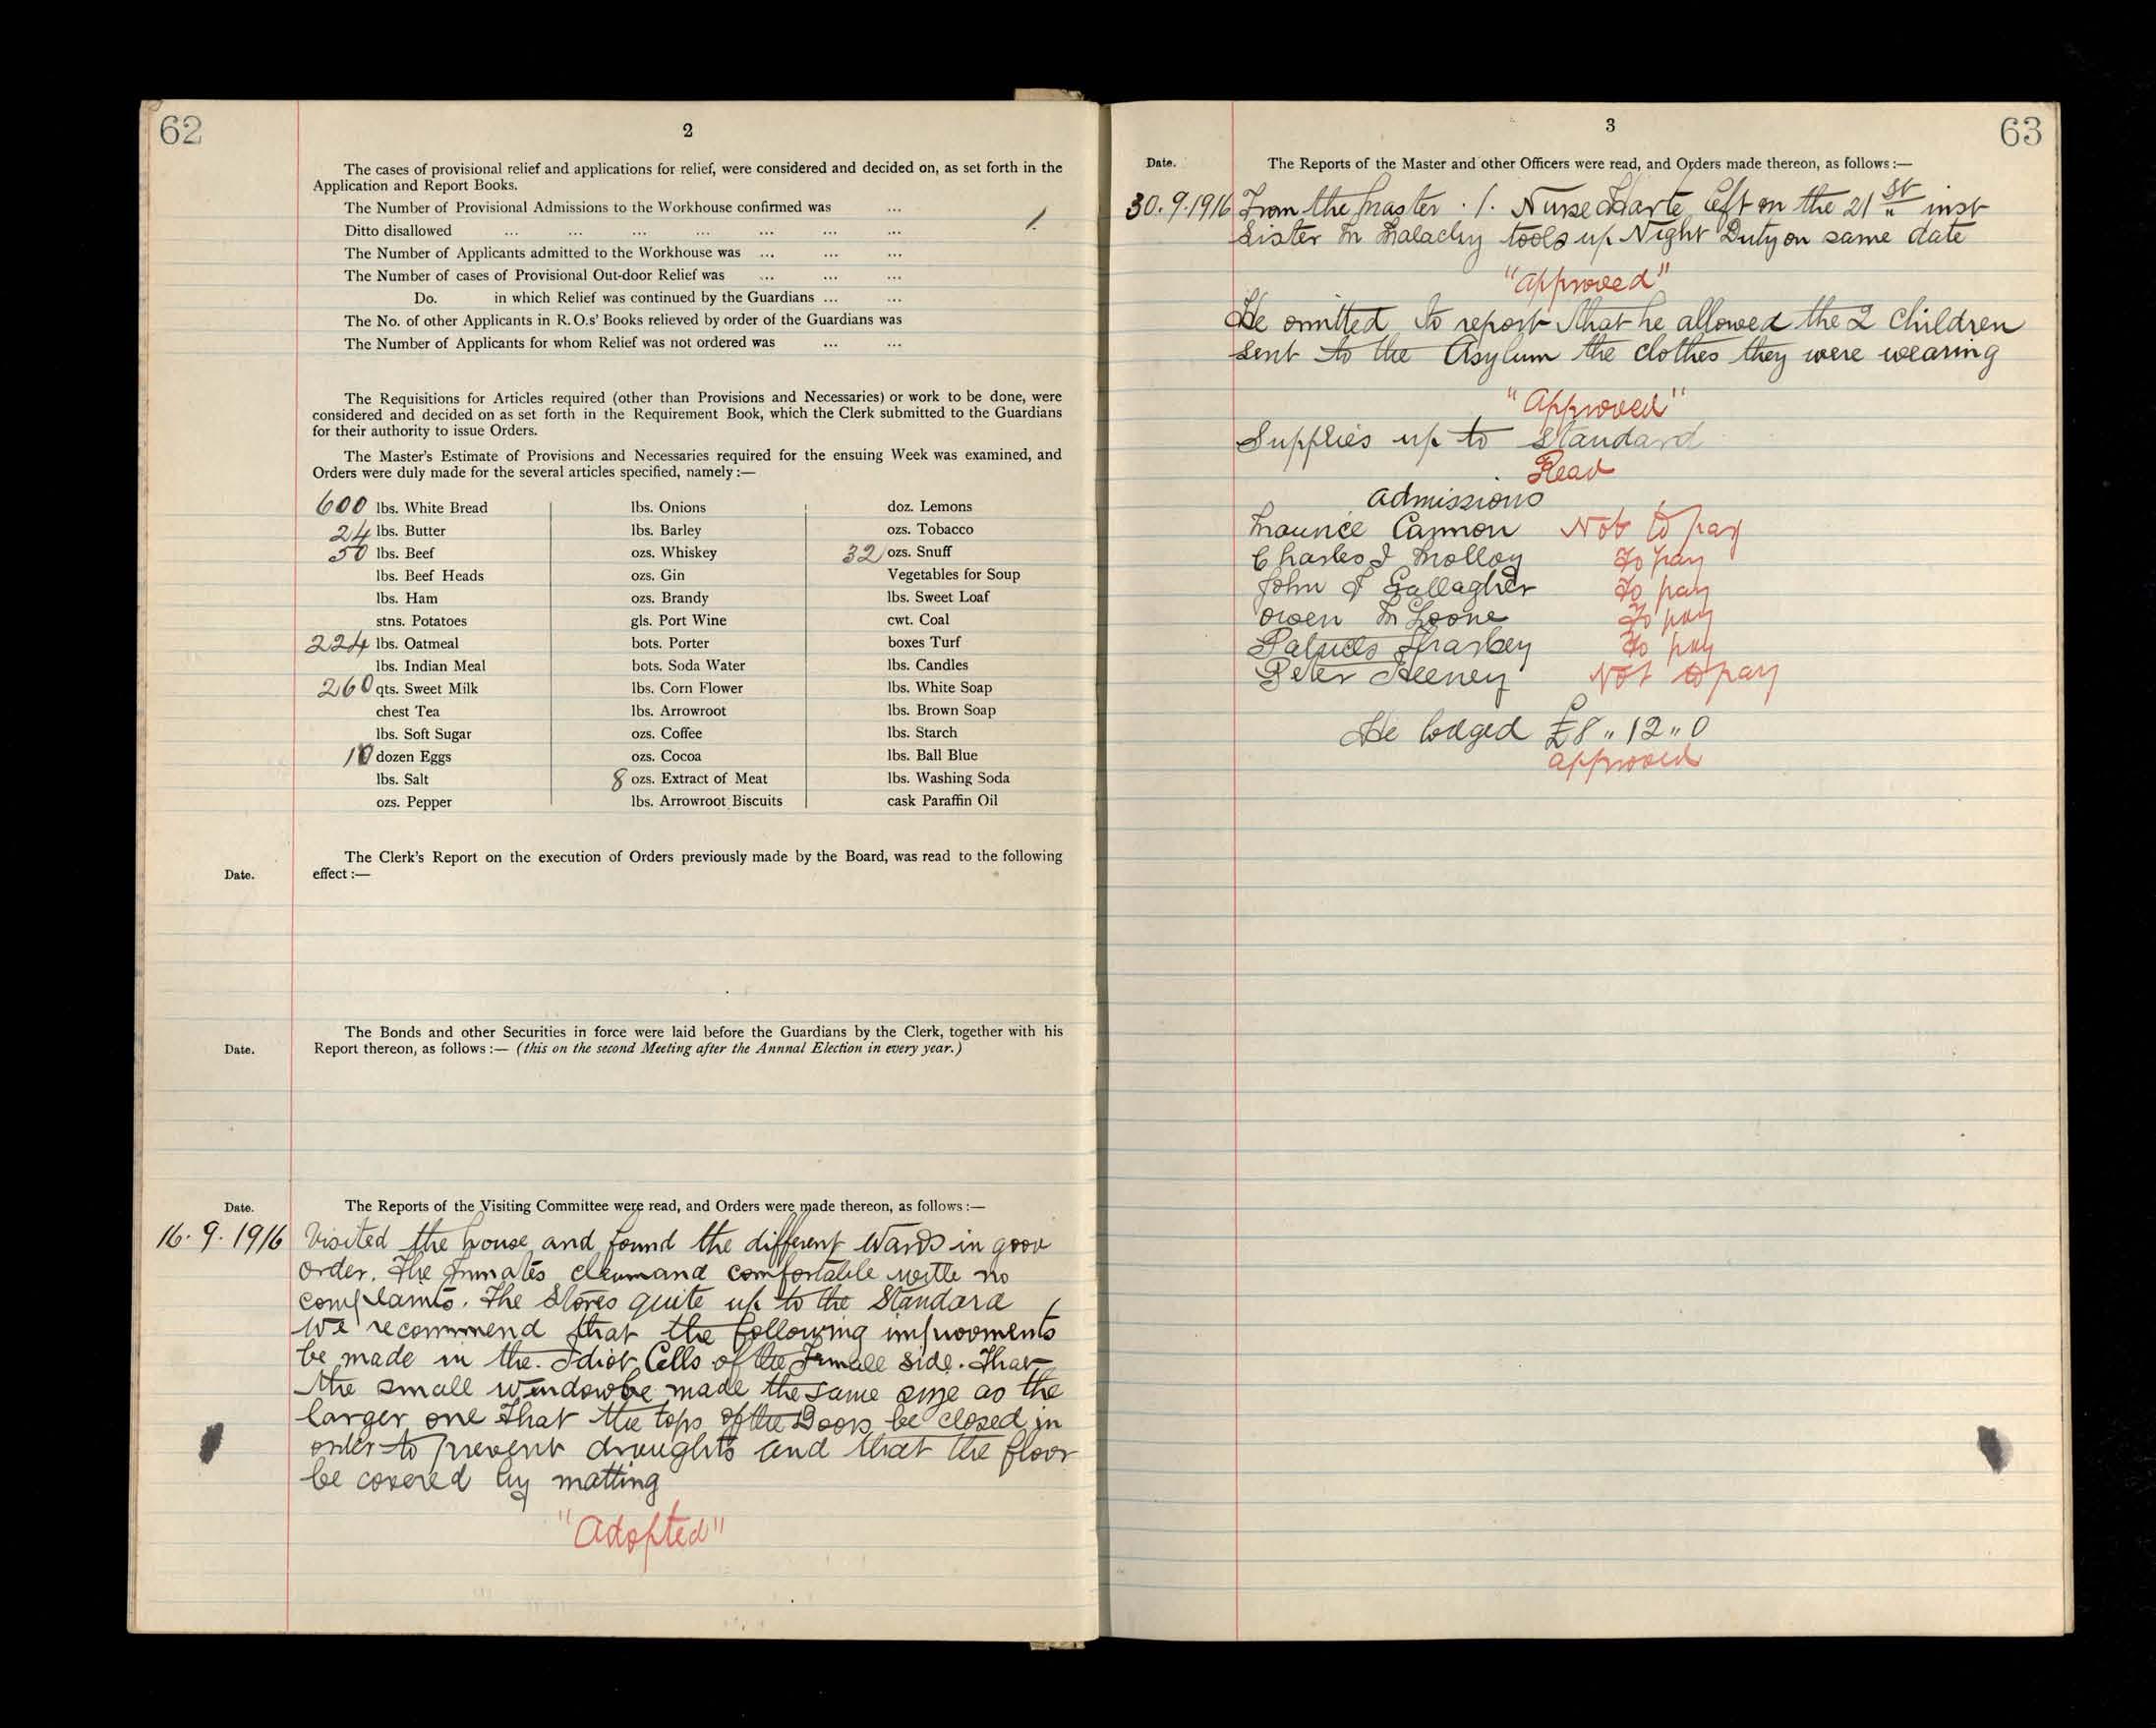 62
2
The cases of provisional relief and applications for relief, were considered and decided on, as set forth in the
Application and Report Books.
The Number of Provisional Admissions to the Workhouse confirmed was ...
Ditto disallowed ... ... ... ... ... ... ... 1.
The Number of Applicants admitted to the Workhouse was ... ... ...
The Number of cases of Provisional Out-door Relief was ... ... ...
Do. in which Relief was continued by the Guardians ... ...
The No. of other Applicants in R.O.s' Books relieved by order of the Guardians was
The Number of Applicants for whom Relief was not ordered was ... ...
The Requisitions for Articles required (other than Provisions and Necessaries) or work to be done, were
considered and decided on as set forth in the Requirement Book, which the Clerk submitted to the Guardians
for their authority to issue Orders.
The Master's Estimate of Provisions and Necessaries required for the ensuing Week was examined, and
Orders were duly made for the several articles specified, namely :—
600 lbs. White Bread
24 lbs. Butter
50 lbs. Beef
lbs. Beef Heads
lbs. Ham
stns. Potatoes
224 lbs. Oatmeal
lbs. Indian Meal
260 qts. Sweet Milk
chest Tea
lbs. Soft Sugar
10 dozen Eggs
lbs. Salt
ozs. Pepper
lbs. Onions
lbs. Barley
ozs. Whiskey
ozs. Gin
ozs. Brandy
gls. Port Wine
bots. Porter
bots. Soda Water
lbs. Corn Flower
lbs. Arrowroot
ozs. Coffee
ozs. Cocoa
8 ozs. Extract of Meat
lbs. Arrowroot Biscuits
doz. Lemons
ozs. Tobacco
32 ozs. Snuff
Vegetables for Soup
lbs. Sweet Loaf
cwt. Coal
boxes Turf
lbs. Candles
lbs. White Soap
lbs. Brown Soap
lbs. Starch
lbs. Ball Blue
lbs. Washing Soda
cask Paraffin Oil
The Clerk's Report on the execution of Orders previously made by the Board, was read to the following
Date. effect :—
The Bonds and other Securities in force were laid before the Guardians by the Clerk, together with his
Date. Report thereon, as follows :— (this on the second Meeting after the Annnal Election in every year.)
Date. The Reports of the Visiting Committee were read, and Orders were made thereon, as follows :—
16.9.1916 Visited the house and found the different Wards in good
order. The Inmates clean and comfortable with no
complaints. The Stores quite up to the Standard
We recommend that the following improoments
be made in the Idiot Cells of the Female side. That
the small window be made the same size as the
larger one That the tops of the Doors be closed in
order to prevent draughts and that the floor
be covered by matting
"Adopted"
3
63
Date. The Reports of the Master and other Officers were read, and Orders made thereon, as follows :—
30.9.1916 From the Master. 1. Nurse Harte left on the 21st inst
Sister M Malachy took up Night Duty on same date
"Approved"
He omitted to report that he allowed the 2 Children
sent to the Asylum the clothes they were wearing
"Approved"
Supplies up to Standard
Read
Admissions
Maurice Cannon Not to pay
Charles J Molloy To pay
John J Gallagher To pay
Owen McLoone To pay
Patrick To pay
Peter Feeney Not to pay
He lodged £8 " 12 " 0
approved